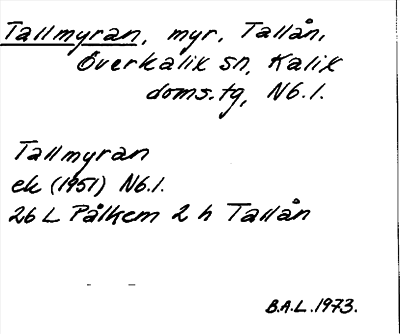 Tallmyran, myr, Tallån,
Överkalix sn, Kalix
doms.tg, Nb.l.
Tallmyran
ek (1951) Nb.l.
26 L Pålkem 2 h Tallån
B.A.L. 1973.